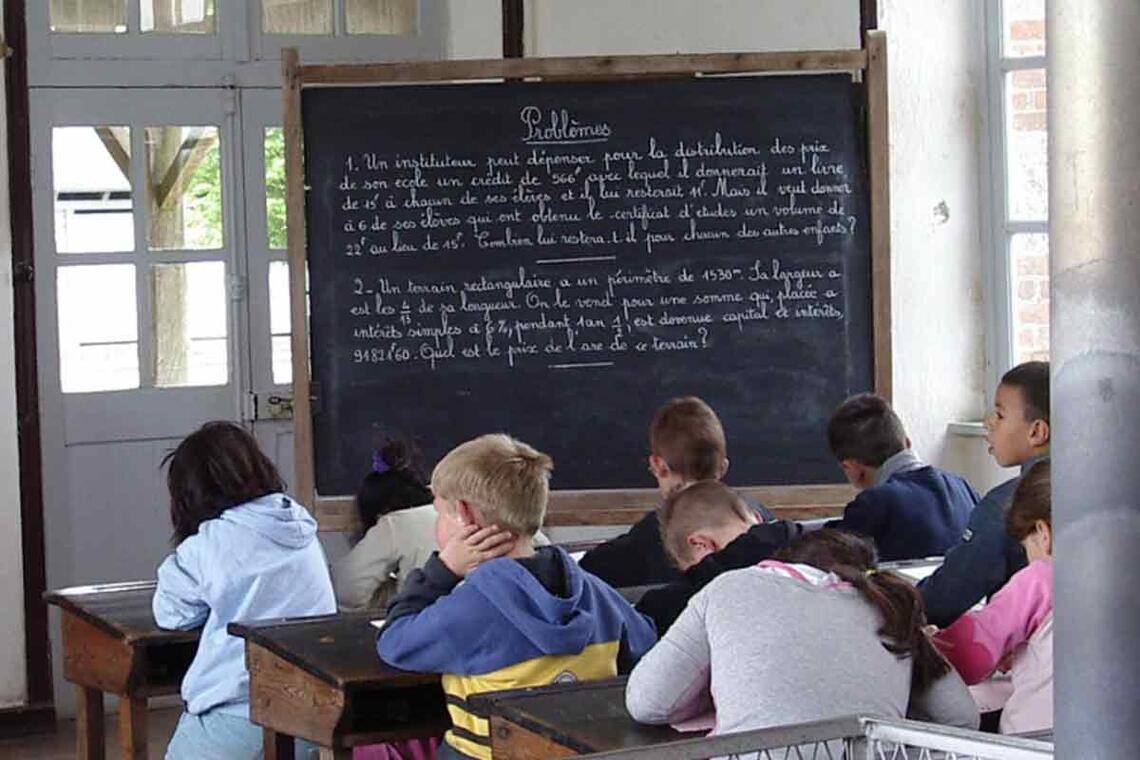 Problèmes
1. Un instituteur peut dépenser pour la distribution des prix
de son école un crédit de 566f avec lequel il donnerait un livre
de 15f à chacun de ses élèves et il lui resterait 11f. Mais il veut donner
à 6 de ses élèves qui ont obtenu le certificat d'études un volume de
22f au lieu de 15f. Combien lui restera-t-il pour chacun des autres enfants?
2_ Un terrain rectangulaire a un périmètre de 1530m. Sa largeur a
est les 4/13 de sa longueur. On le vend pour une somme qui, placée a
intérêts simples à 6%, pendant 1an 1/2, est devenue capital et intérêts,
91821f60. Quel est le prix de l'are de ce terrain?